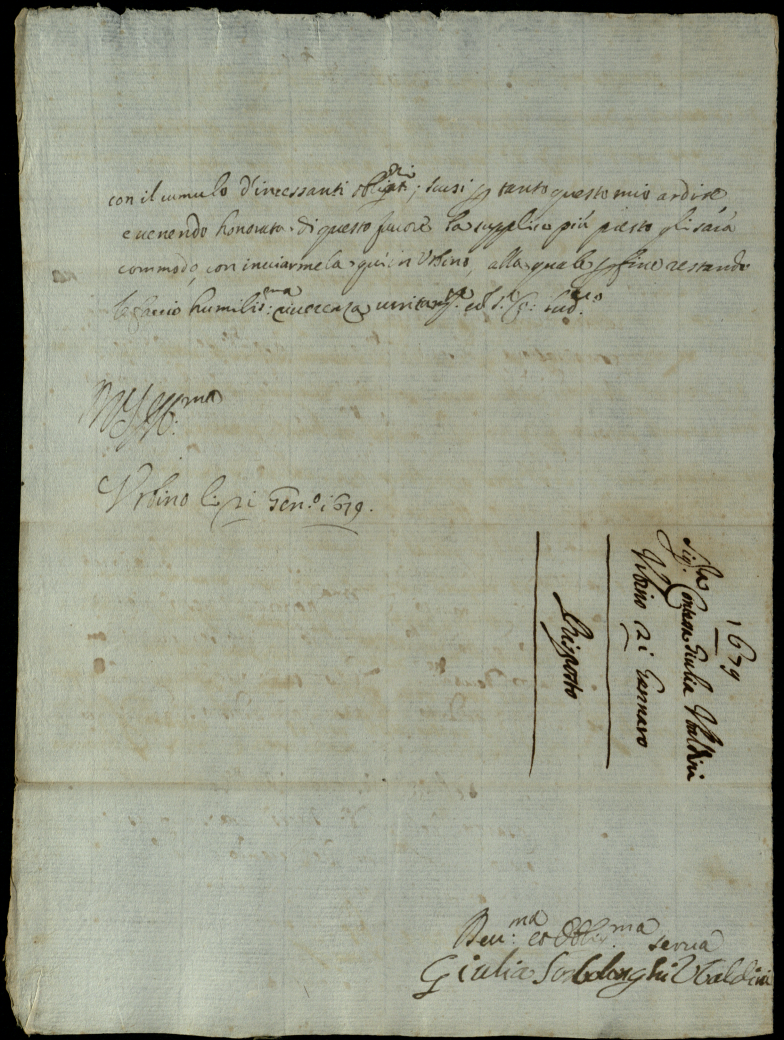 con il cumulo d'incessanti oblig.ni; scusi p tanto questo mio ardire
e venendo honorata di questo favore la supplico più presto gli sarà
commodo, con inviarmela qui in Urbino, alla quale p fine restando
le faccio humilis.ma riverenza unita
Urbino li 21 Gen.o 1679.
1679
Sig.ra Contessa Giulia Ubaldini
Urbino 21 Gennaro
Risposto
Dev.ma et Oblig.ma serva
Giulia Sorbolonghi Ubaldini